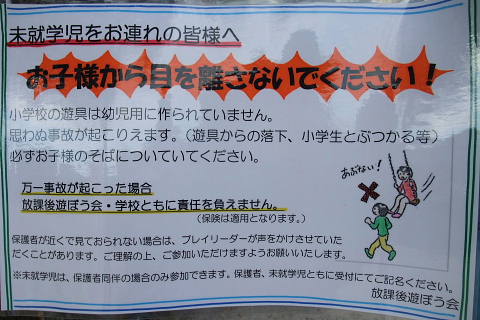 未就学児をお連れの皆様へ
お子様から目を離さないでください！
小学校の遊具は幼児用に作られていません。
思わぬ事故が起こりえます。（遊具からの落下、小学生とぶつかる等）
必ずお子様のそばについていてください。
あぶない！
万一事故が起こった場合
放課後遊ぼう会・学校ともに責任を負えません。
（保険は適用となります。）
保護者が近くで見ておられない場合は、プレイリーダーが声をかけさせていた
だくことがあります。ご理解の上、ご参加いただけますようお願いいたします。
※未就学児は、保護者同伴の場合のみ参加できます。保護者、未就学児ともに受付にてご記名ください。
放課後遊ぼう会